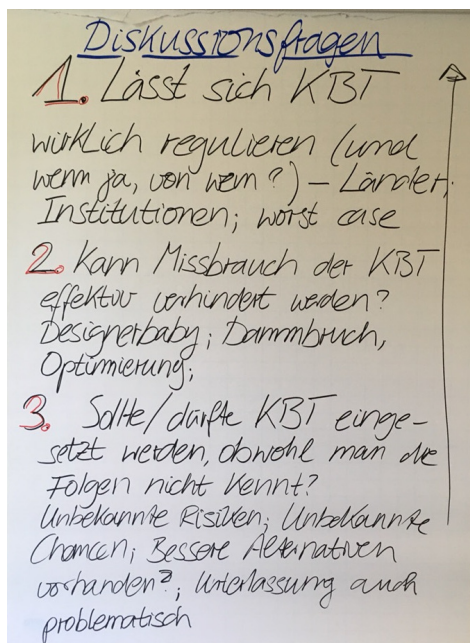 Diskussionsfragen
1. Lässt sich KBT
wirklich regulieren (und
wenn ja, von wem?) – Länder,
Institutionen; worst case
2. Kann Missbrauch der KBT
effektiv verhindert werden?
Designerbaby; Dammbruch,
Optimierung;
3. Sollte/dürfte KBT einge-
setzt werden, obwohl man die
Folgen nicht kennt?
Unbekannte Risiken; Unbekannte
Chancen; Bessere Alternativen
vorhanden?; Unterlassung auch
problematisch